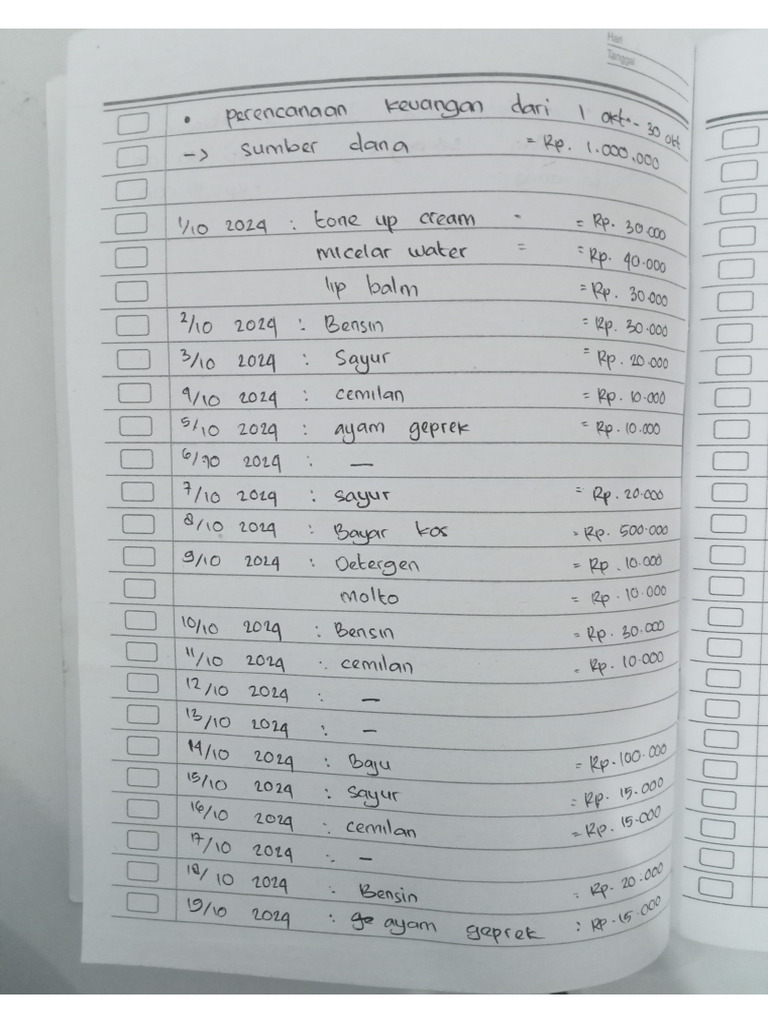 Hari
Tanggal
• perencanaan keuangan dari 1 okt - 30 okt
-> sumber dana = Rp. 1.000.000
1/10 2024 : tone up cream - = Rp. 30.000
micelar water = = Rp. 40.000
lip balm = Rp. 30.000
2/10 2024 : Bensin = Rp. 30.000
3/10 2024 : Sayur = Rp. 20.000
4/10 2024 : cemilan = Rp. 10.000
5/10 2024 : ayam geprek = Rp. 10.000
6/10 2024 : —
7/10 2024 : sayur = Rp. 20.000
8/10 2024 : Bayar kos = Rp. 500.000
9/10 2024 : Detergen = Rp. 10.000
molto = Rp. 10.000
10/10 2024 : Bensin = Rp. 30.000
11/10 2024 : cemilan = Rp. 10.000
12/10 2024 : —
13/10 2024 : —
14/10 2024 : Baju = Rp. 100.000
15/10 2024 : sayur = Rp. 15.000
16/10 2024 : cemilan = Rp. 15.000
17/10 2024 : —
18/10 2024 : Bensin = Rp. 20.000
19/10 2024 : ayam geprek : Rp. 15.000